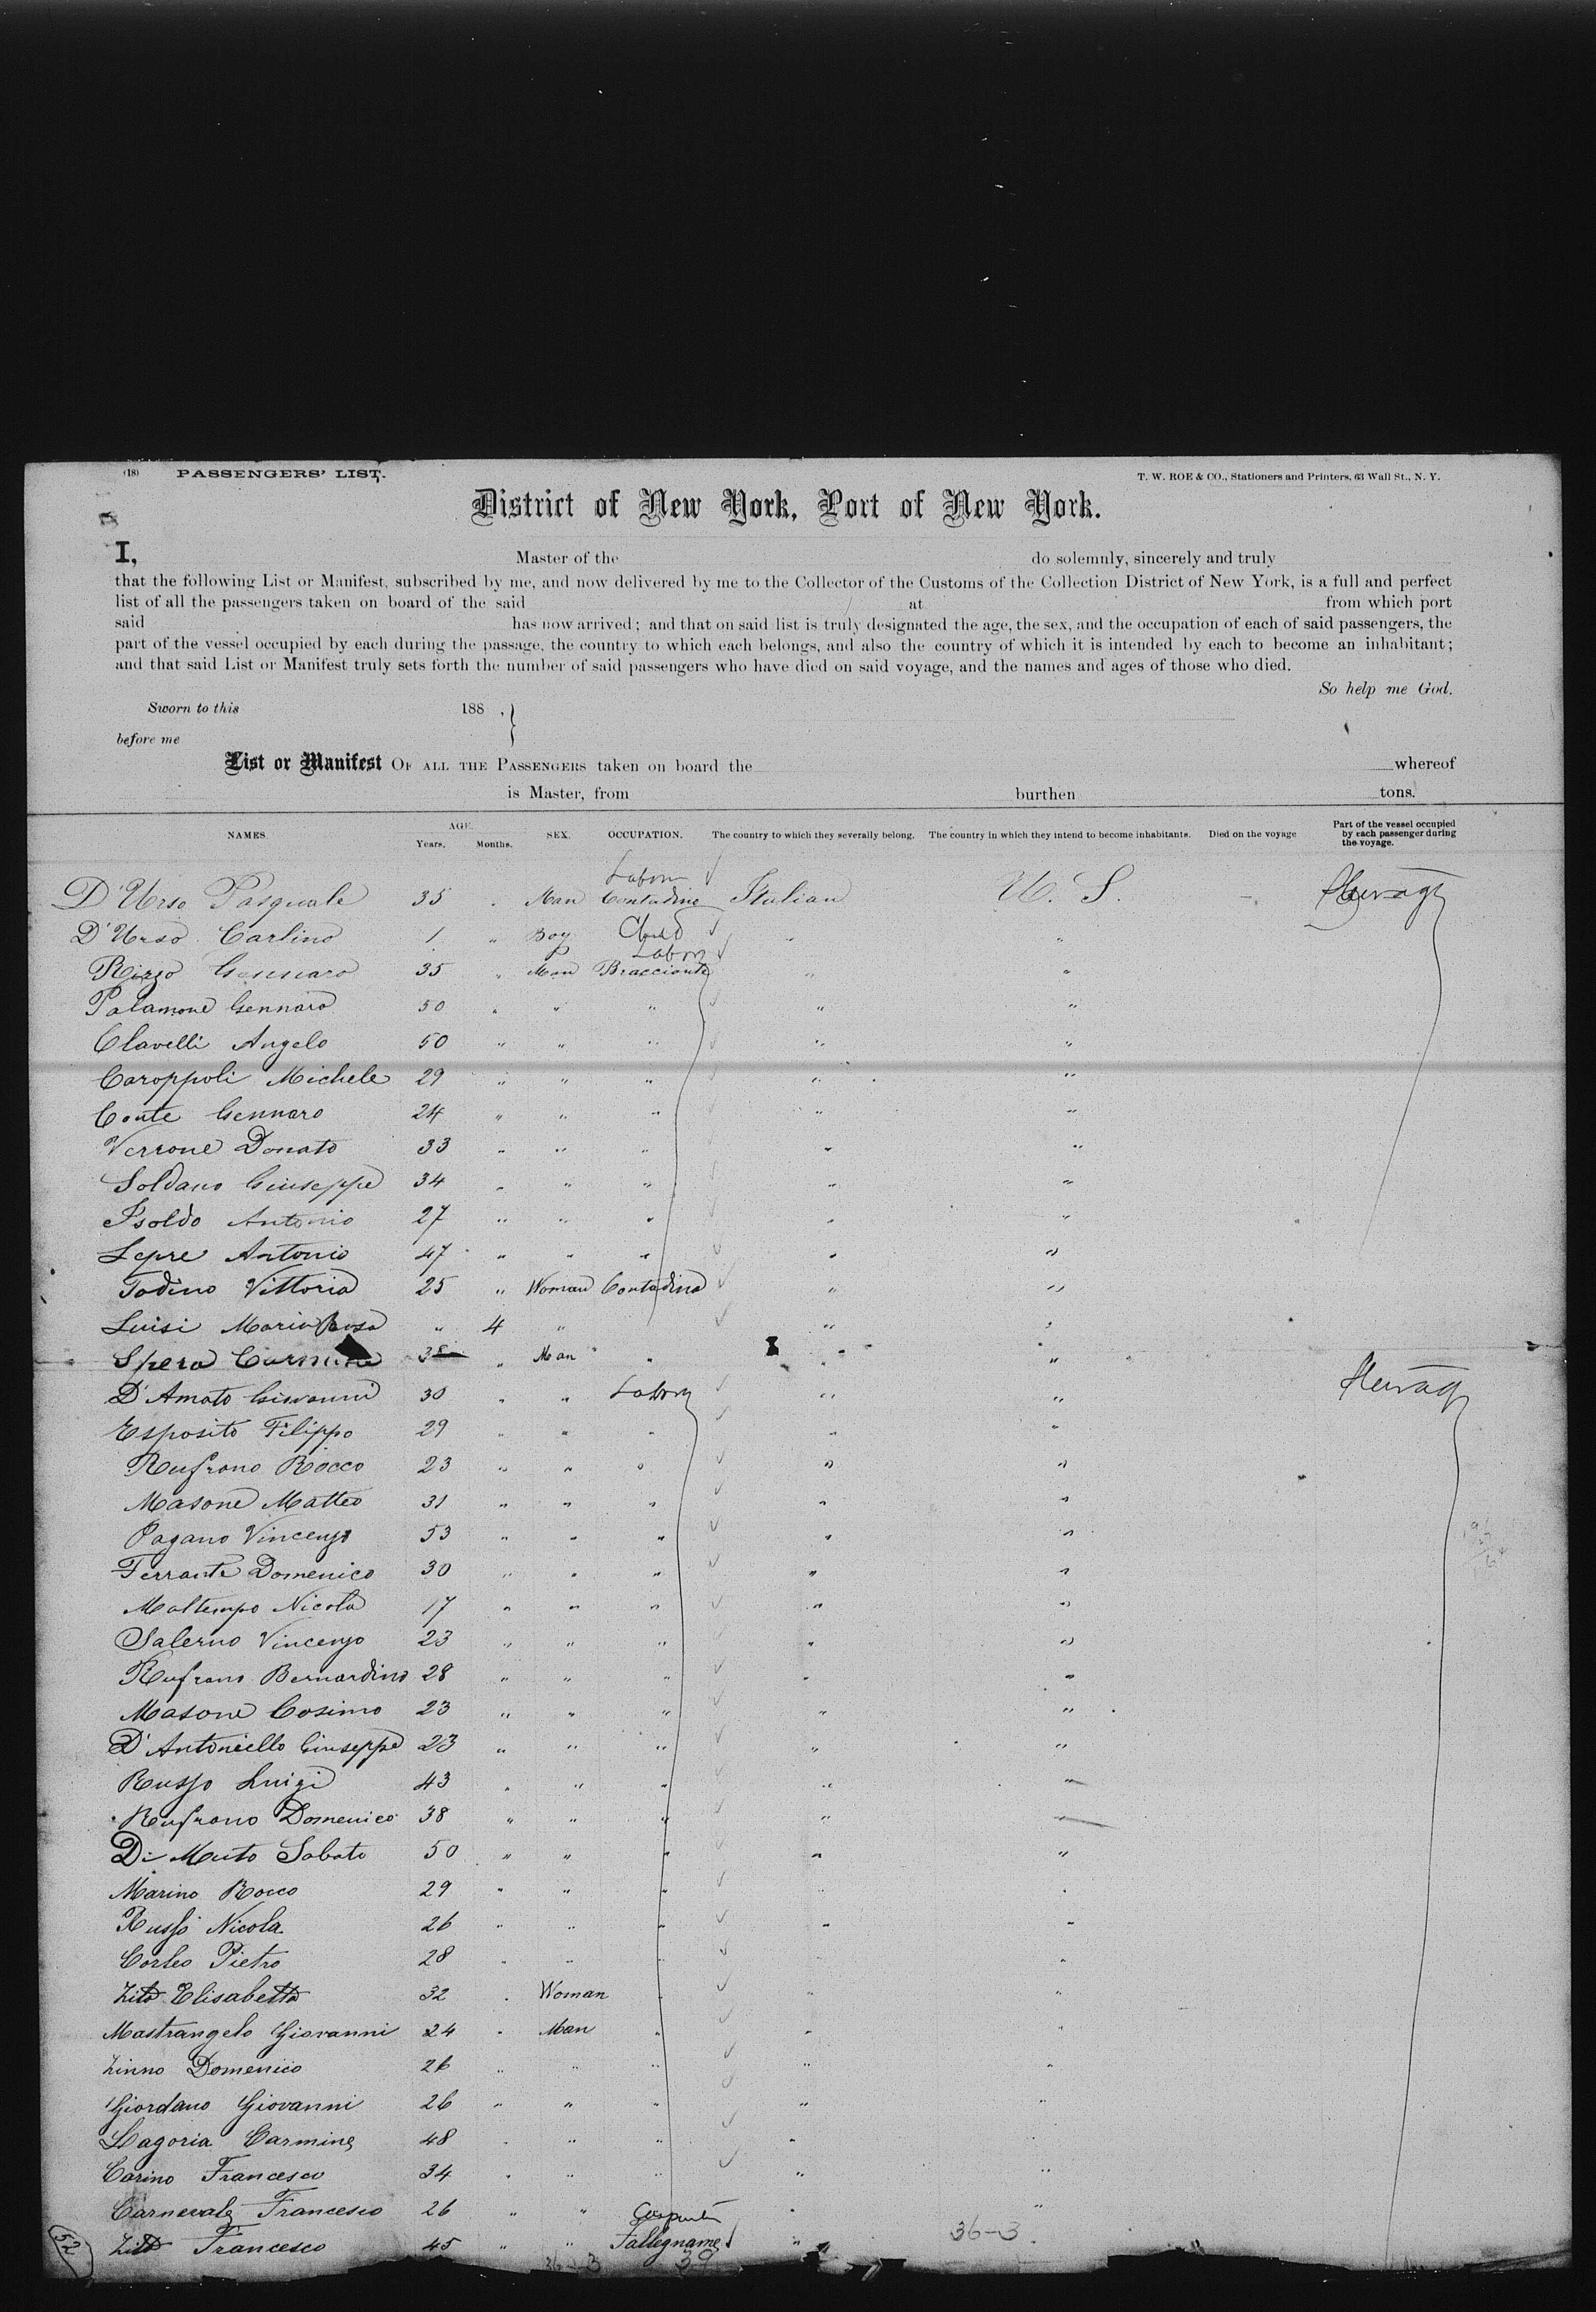 (18) PASSENGERS' LIST. T. W. ROE & CO., Stationers and Printers, 63 Wall St., N. Y.
District of New York, Port of New York.
I, Master of the do solemnly, sincerely and truly
that the following List or Manifest, subscribed by me, and now delivered by me to the Collector of the Customs of the Collection District of New York, is a full and perfect
list of all the passengers taken on board of the said at from which port
said has now arrived; and that on said list is truly designated the age, the sex, and the occupation of each of said passengers, the
part of the vessel occupied by each during the passage, the country to which each belongs, and also the country of which it is intended by each to become an inhabitant;
and that said List or Manifest truly sets forth the number of said passengers who have died on said voyage, and the names and ages of those who died.
So help me God.
Sworn to this 188 , }
before me
List or Manifest OF ALL THE PASSENGERS taken on board the whereof
is Master, from burthen tons.
NAMES. AGE. Years. Months. SEX. OCCUPATION. The country to which they severally belong. The country in which they intend to become inhabitants. Died on the voyage Part of the vessel occupied by each passenger during the voyage.
Labor ✓
D'Urso Pasquale 35 " Man Contadine Italian U. S. -
D'Urso Carlino 1 " Boy Child ✓ " "
Labor ✓
Rizzo Gennaro 35 " Man Bracciante " "
Palamone Gennaro 50 " " " ✓ " "
Clavelli Angelo 50 " " " ✓ " "
Caroppoli Michele 29 " " " ✓ " "
Conte Gennaro 24 " " " ✓ " "
Verrone Donato 33 " " " " "
Soldano Giuseppe 34 " " " ✓ " "
Isoldo Antonio 27 " " " ✓ " "
Lepre Antonio 47 " " " ✓ " "
Todino Vittoria 25 " Woman Contadina ✓ " "
Luisi Maria Rosa " 4 " ✓ " "
Spera Carmine " Man " " "
D'Amato Giovanni 30 " " Labor ✓ " "
Esposito Filippo 29 " " " ✓ " "
Rufrano Rocco 23 " " " ✓ " "
Masone Matteo 31 " " " ✓ " "
Pagano Vincenzo 53 " " " ✓ " "
Ferrante Domenico 30 " " " ✓ " "
Maltempo Nicola 17 " " " ✓ " "
Salerno Vincenzo 23 " " " ✓ " "
Rufrano Bernardino 28 " " " ✓ " "
Masone Cosimo 23 " " " ✓ " "
D'Antoniello Giuseppe 23 " " " ✓ " "
Russo Luigi 43 " " " ✓ " "
Rufrano Domenico 38 " " " ✓ " "
Di Muto Sabato 50 " " " ✓ " "
Marino Rocco 29 " " " ✓ " "
Russo Nicola 26 " " " ✓ " "
Corleo Pietro 28 " " " ✓ " "
Zito Elisabetta 32 " Woman " ✓ " "
Mastrangelo Giovanni 24 " Man " ✓ " "
Zinno Domenico 26 " " " ✓ " "
Giordano Giovanni 26 " " " ✓ " "
Lagoria Carmine 48 " " " ✓ " "
Carino Francesco 34 " " " ✓ " "
Carnevale Francesco 26 " " " "
Zito Francesco 45 " " Fallegname ✓ " 36-3
52 36-3 39